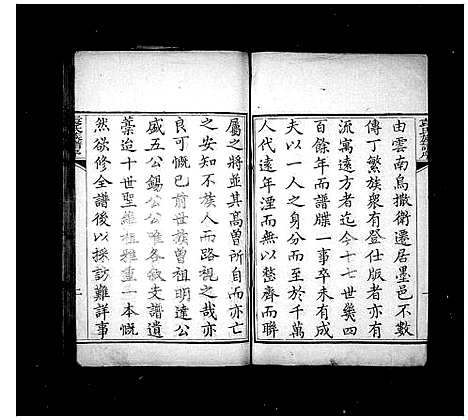 由雲南烏撒衛遷居墨邑不數
傳丁繁族衆有登仕版者亦有
流寓遠方者迄今十七世幾四
百餘年而譜牒一事卒未有成
夫以一人之身分而至於千萬
人代遠年湮而無以整齊而聯
屬之將並其高曾所自而亦亡
之安知不族人而路視之哉亦
良可慨已前世族曾祖明達公
盛五公錫公公唯各敘支譜遺
藁迨十世聖維祖雅重三本慨
然欲修全譜後以採訪難詳事